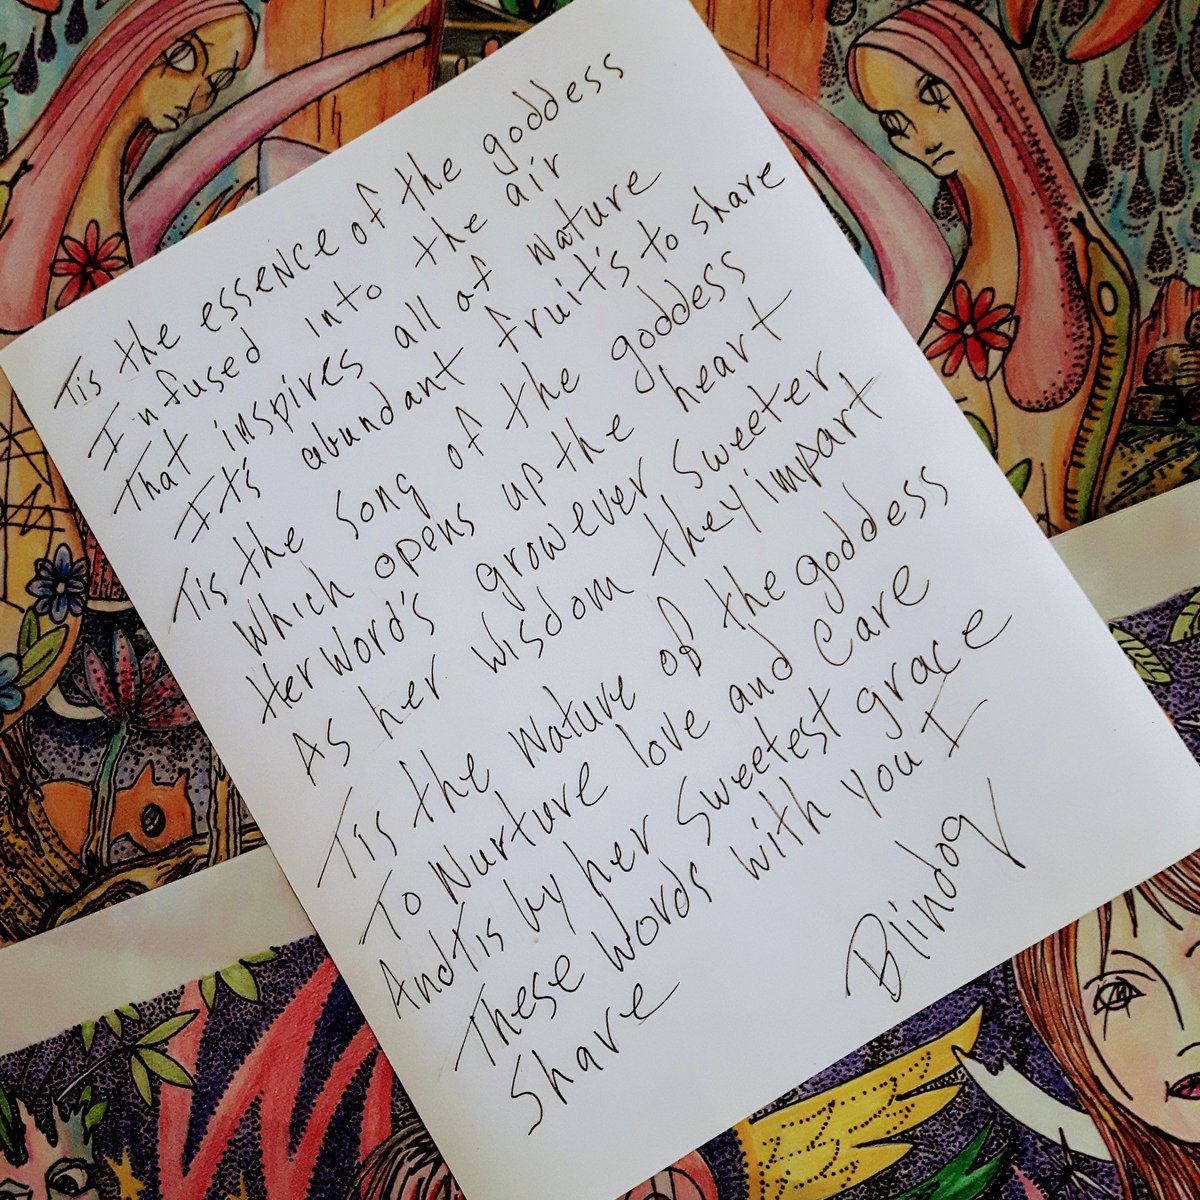 Tis the essence of the goddess
Infused into the air
That inspires all of nature
It's abundant fruit's to share
Tis the song of the goddess
Which opens up the heart
Her word's grow ever sweeter,
As her wisdom they impart
Tis the nature of the goddess
To Nurture love and Care
And tis by her sweetest grace
These words with you I
Share
Blindog